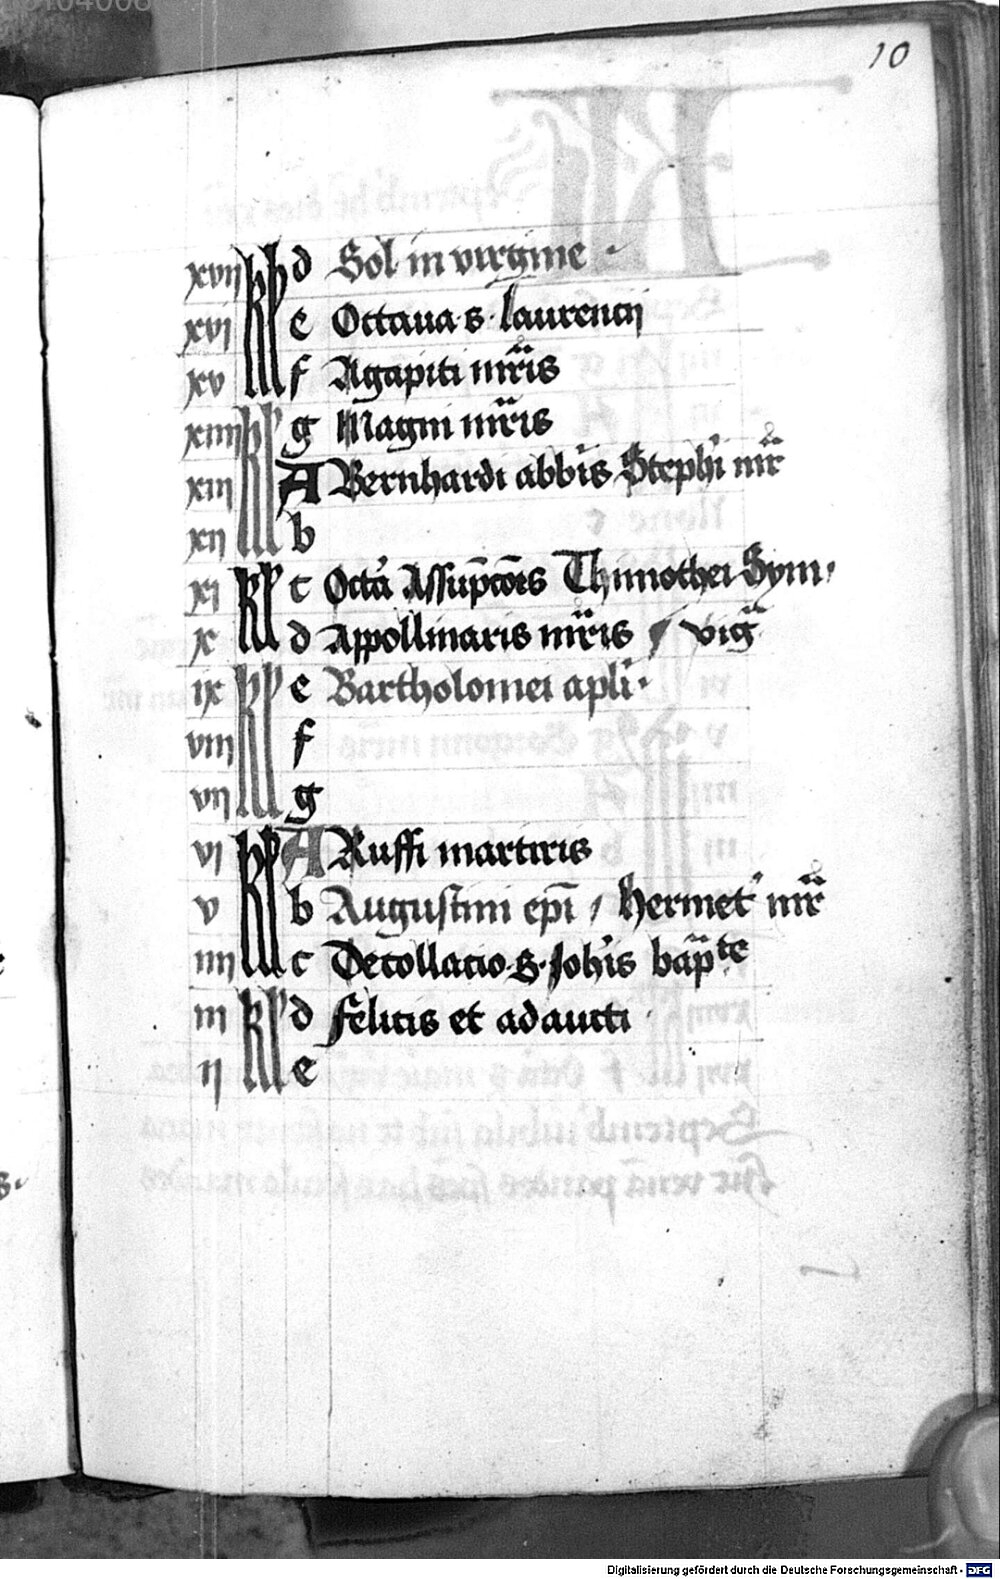 10
xvij kl d Sol in virgine
xvj e Octaua s. laurencij
xv f Agapiti mr̄is
xiiij kl g Magni mr̄is
xiij A Bernhardi abb'is Steph'i mr̄
xij b
xj kl c Octa' Assūpcōis Thimothei Sym'
x d Appollinaris mr̄is / vig̃
ix kl e Bartholomei apl'i
viij f
vij g
vj kl A Ruffi martiris
v b Augustini ep̄i / Hermet' mr̄
iiij c Decollacio. S. Joh'is bap̃te
iij kl d Felicis et adaucti
ij e
Digitalisierung gefördert durch die Deutsche Forschungsgemeinschaft - DFG